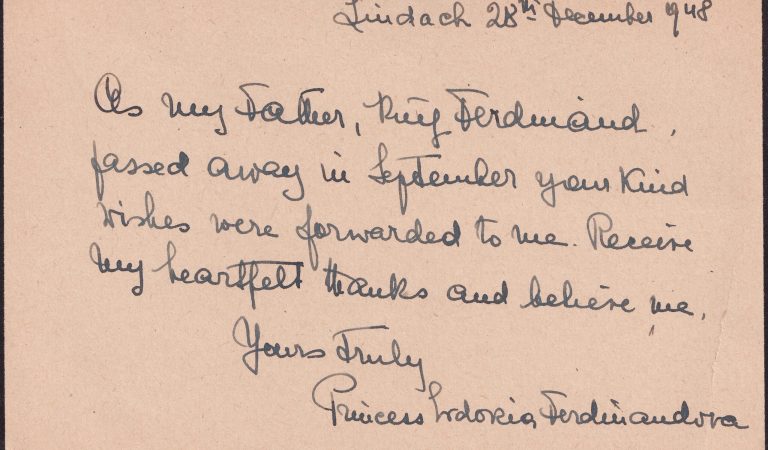 Lindach 28th December 1948
As my Father, King Ferdinand,
passed away in September your kind
wishes were forwarded to me. Receive
my heartfelt thanks and believe me,
Yours Truly
Princess Evdokia Ferdinandova